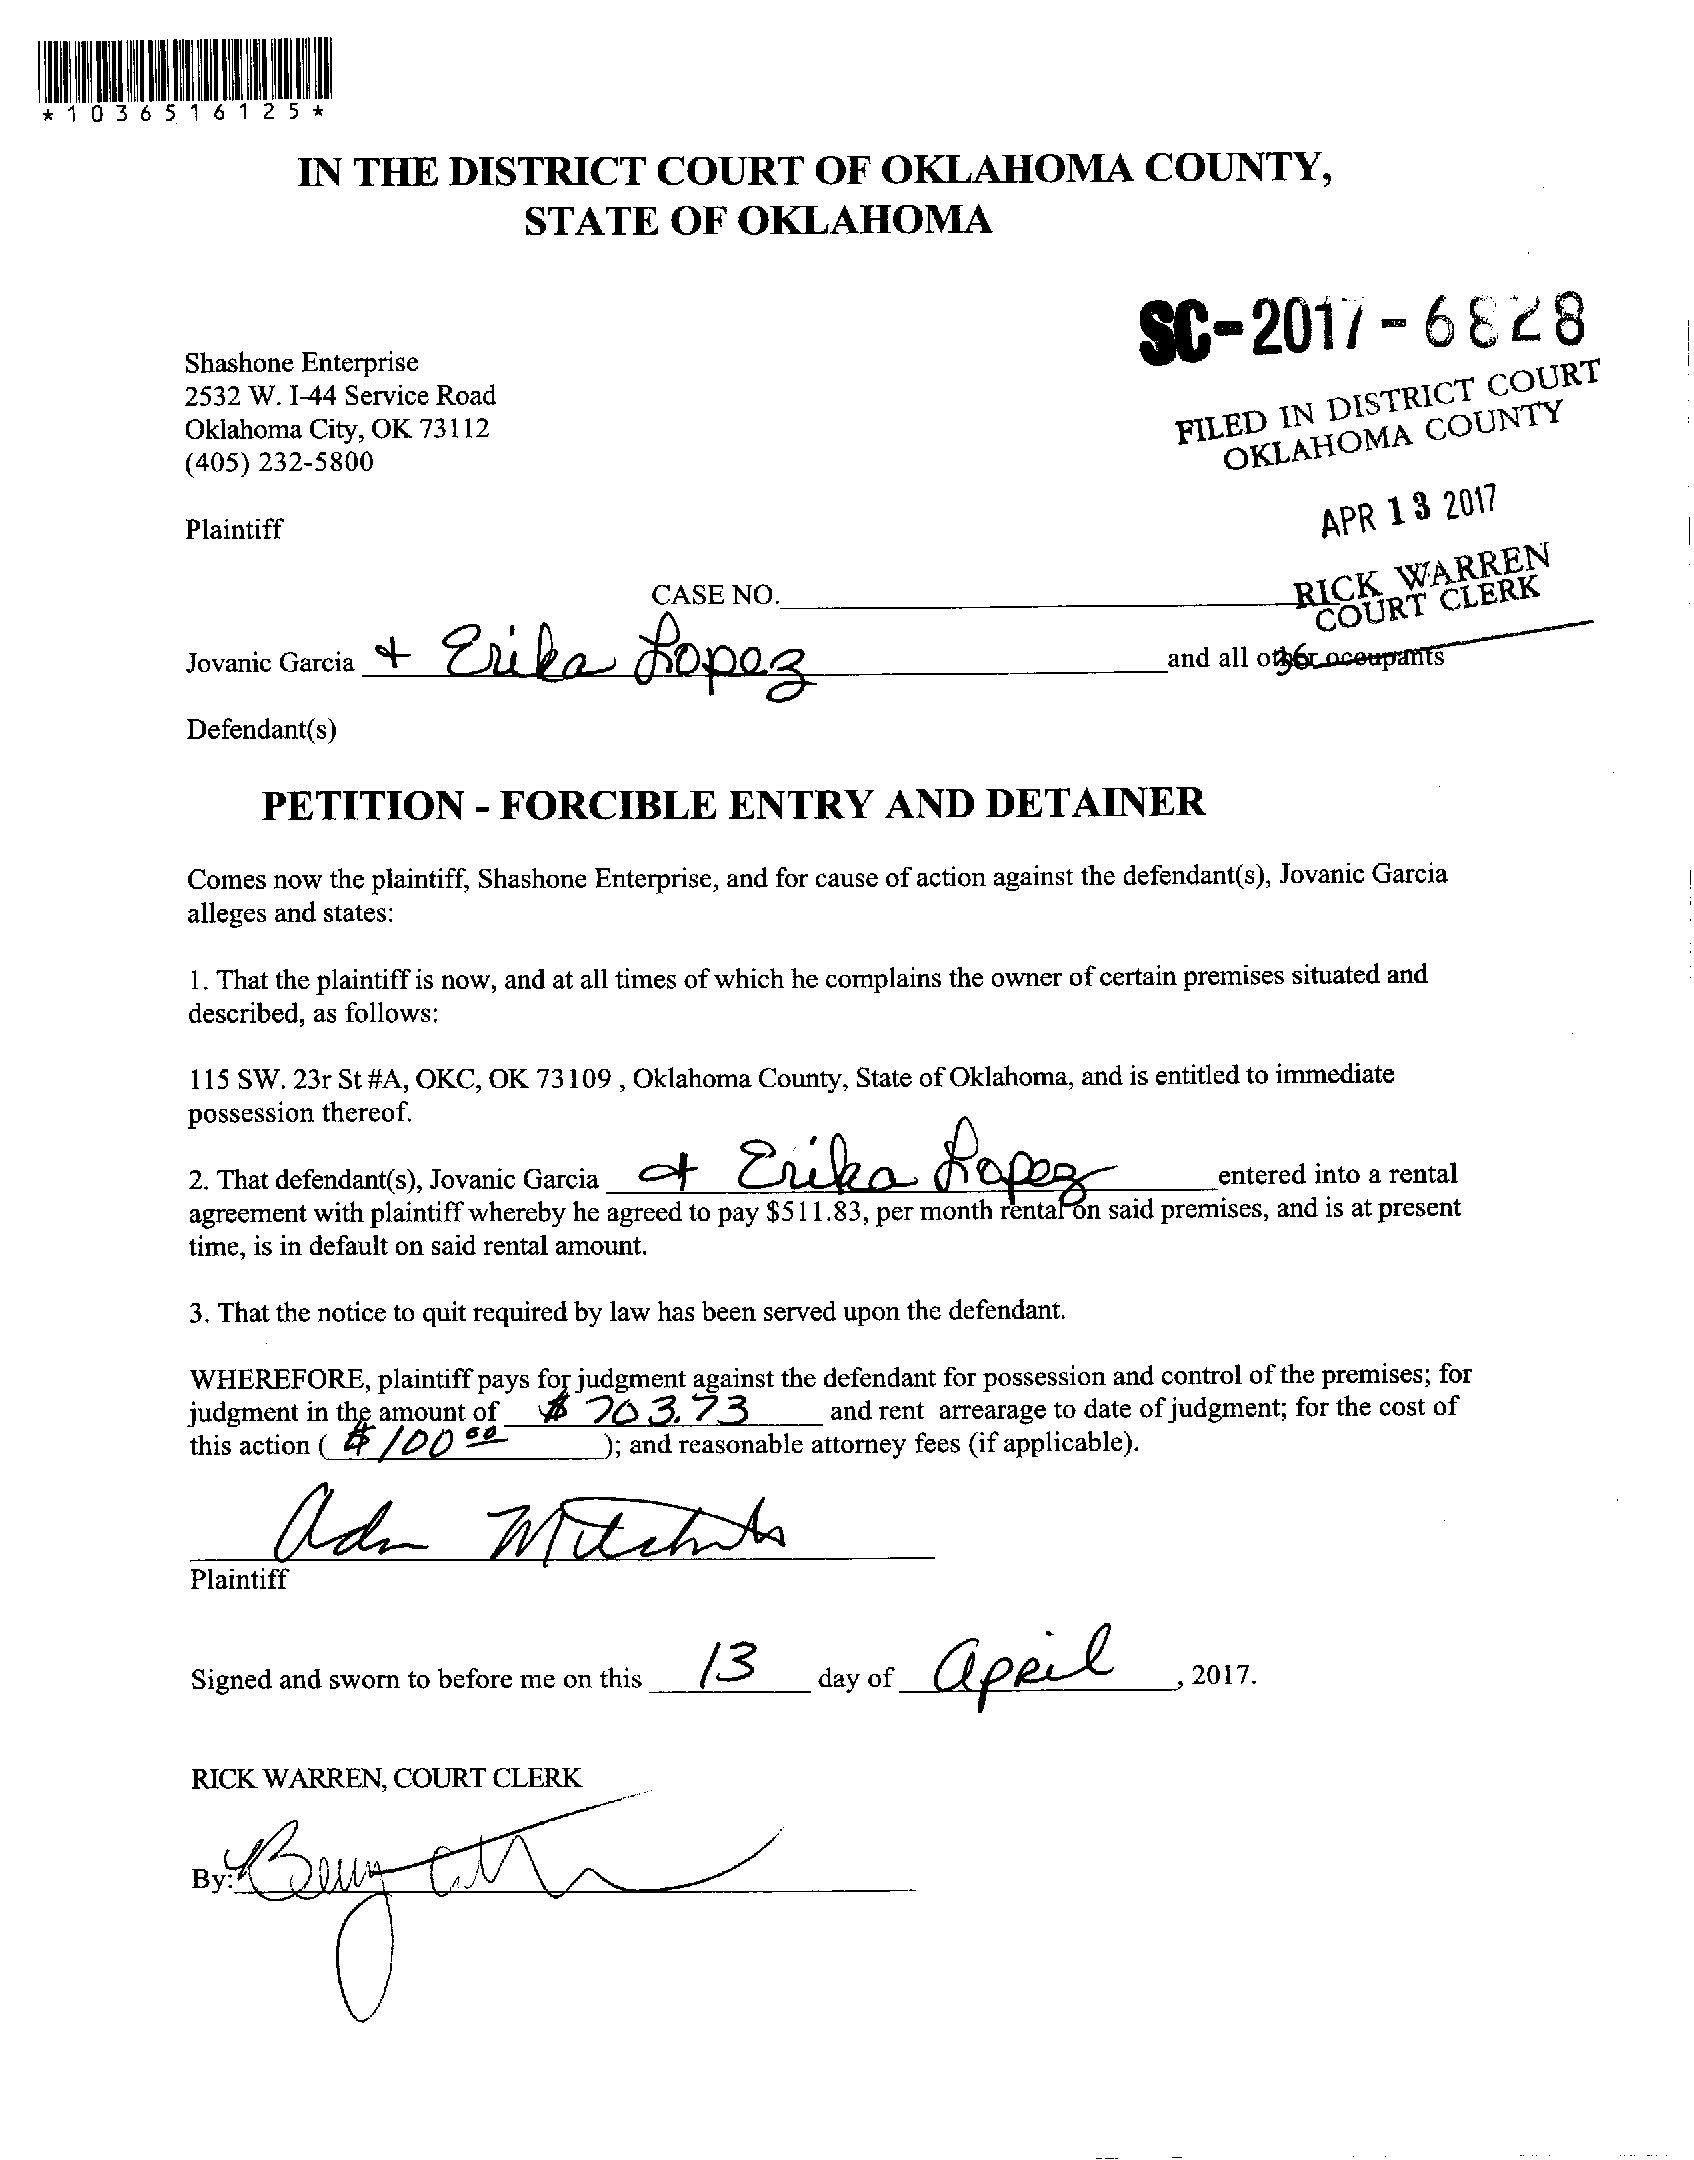 *1036516125*
IN THE DISTRICT COURT OF OKLAHOMA COUNTY,
STATE OF OKLAHOMA
SC-2017-6828
Shashone Enterprise
2532 W. I-44 Service Road
Oklahoma City, OK 73112
(405) 232-5800
FILED IN DISTRICT COURT
OKLAHOMA COUNTY
APR 13 2017
Plaintiff
RICK WARREN
COURT CLERK
CASE NO.
36
Jovanic Garcia + Erika Lopez and all other occupants
Defendant(s)
PETITION - FORCIBLE ENTRY AND DETAINER
Comes now the plaintiff, Shashone Enterprise, and for cause of action against the defendant(s), Jovanic Garcia
alleges and states:
1. That the plaintiff is now, and at all times of which he complains the owner of certain premises situated and
described, as follows:
115 SW. 23r St #A, OKC, OK 73109 , Oklahoma County, State of Oklahoma, and is entitled to immediate
possession thereof.
2. That defendant(s), Jovanic Garcia + Erika Lopez entered into a rental
agreement with plaintiff whereby he agreed to pay $511.83, per month rental on said premises, and is at present
time, is in default on said rental amount.
3. That the notice to quit required by law has been served upon the defendant.
WHEREFORE, plaintiff pays for judgment against the defendant for possession and control of the premises; for
judgment in the amount of $ 703.73 and rent arrearage to date of judgment; for the cost of
this action ( $100 00 ); and reasonable attorney fees (if applicable).
Plaintiff
Signed and sworn to before me on this 13 day of April , 2017.
RICK WARREN, COURT CLERK
By: